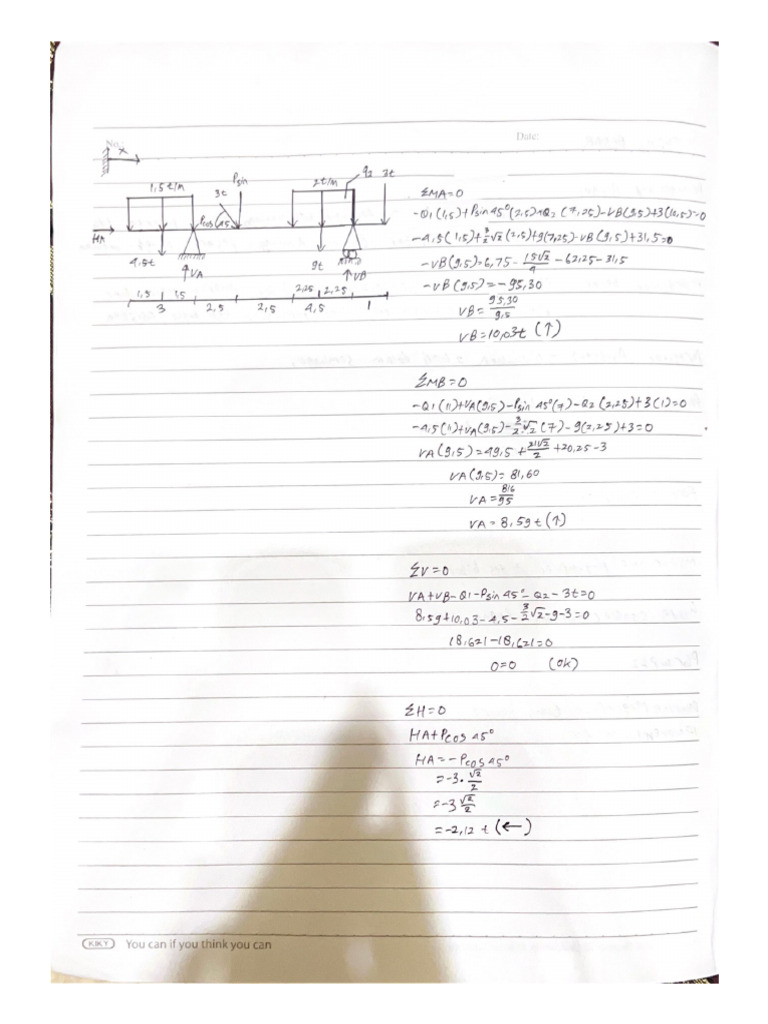 No.:
Date:
x
1,5 t/m
3t
Psin
2t/m
q2
3t
Pcos
45
HA
4,5t
VA
9t
VB
1,5 1,5 2,25 2,25
3 2,5 2,5 4,5 1
ΣMA=0
-Q1(1,5)+Psin45°(2,5)+Q2(7,25)-VB(9,5)+3(10,5)=0
-4,5(1,5)+3/2√2(2,5)+9(7,25)-VB(9,5)+31,5=0
-VB(9,5)=6,75-15√2/4-62,25-31,5
-VB(9,5)=-95,30
VB=95,30/9,5
VB=10,03t (↑)
ΣMB=0
-Q1(11)+VA(9,5)-Psin45°(7)-Q2(2,25)+3(1)=0
-4,5(11)+VA(9,5)-3/2√2(7)-9(2,25)+3=0
VA(9,5)=49,5+21√2/2+20,25-3
VA(9,5)=81,60
VA=816/95
VA=8,59t(↑)
ΣV=0
VA+VB-Q1-Psin45°-Q2-3t=0
8,59+10,03-4,5-3/2√2-9-3=0
18,621-18,621=0
0=0 (ok)
ΣH=0
HA+Pcos45°
HA=-Pcos45°
=-3.√2/2
=-3√2/2
=-2,12 t (←)
KIKY You can if you think you can